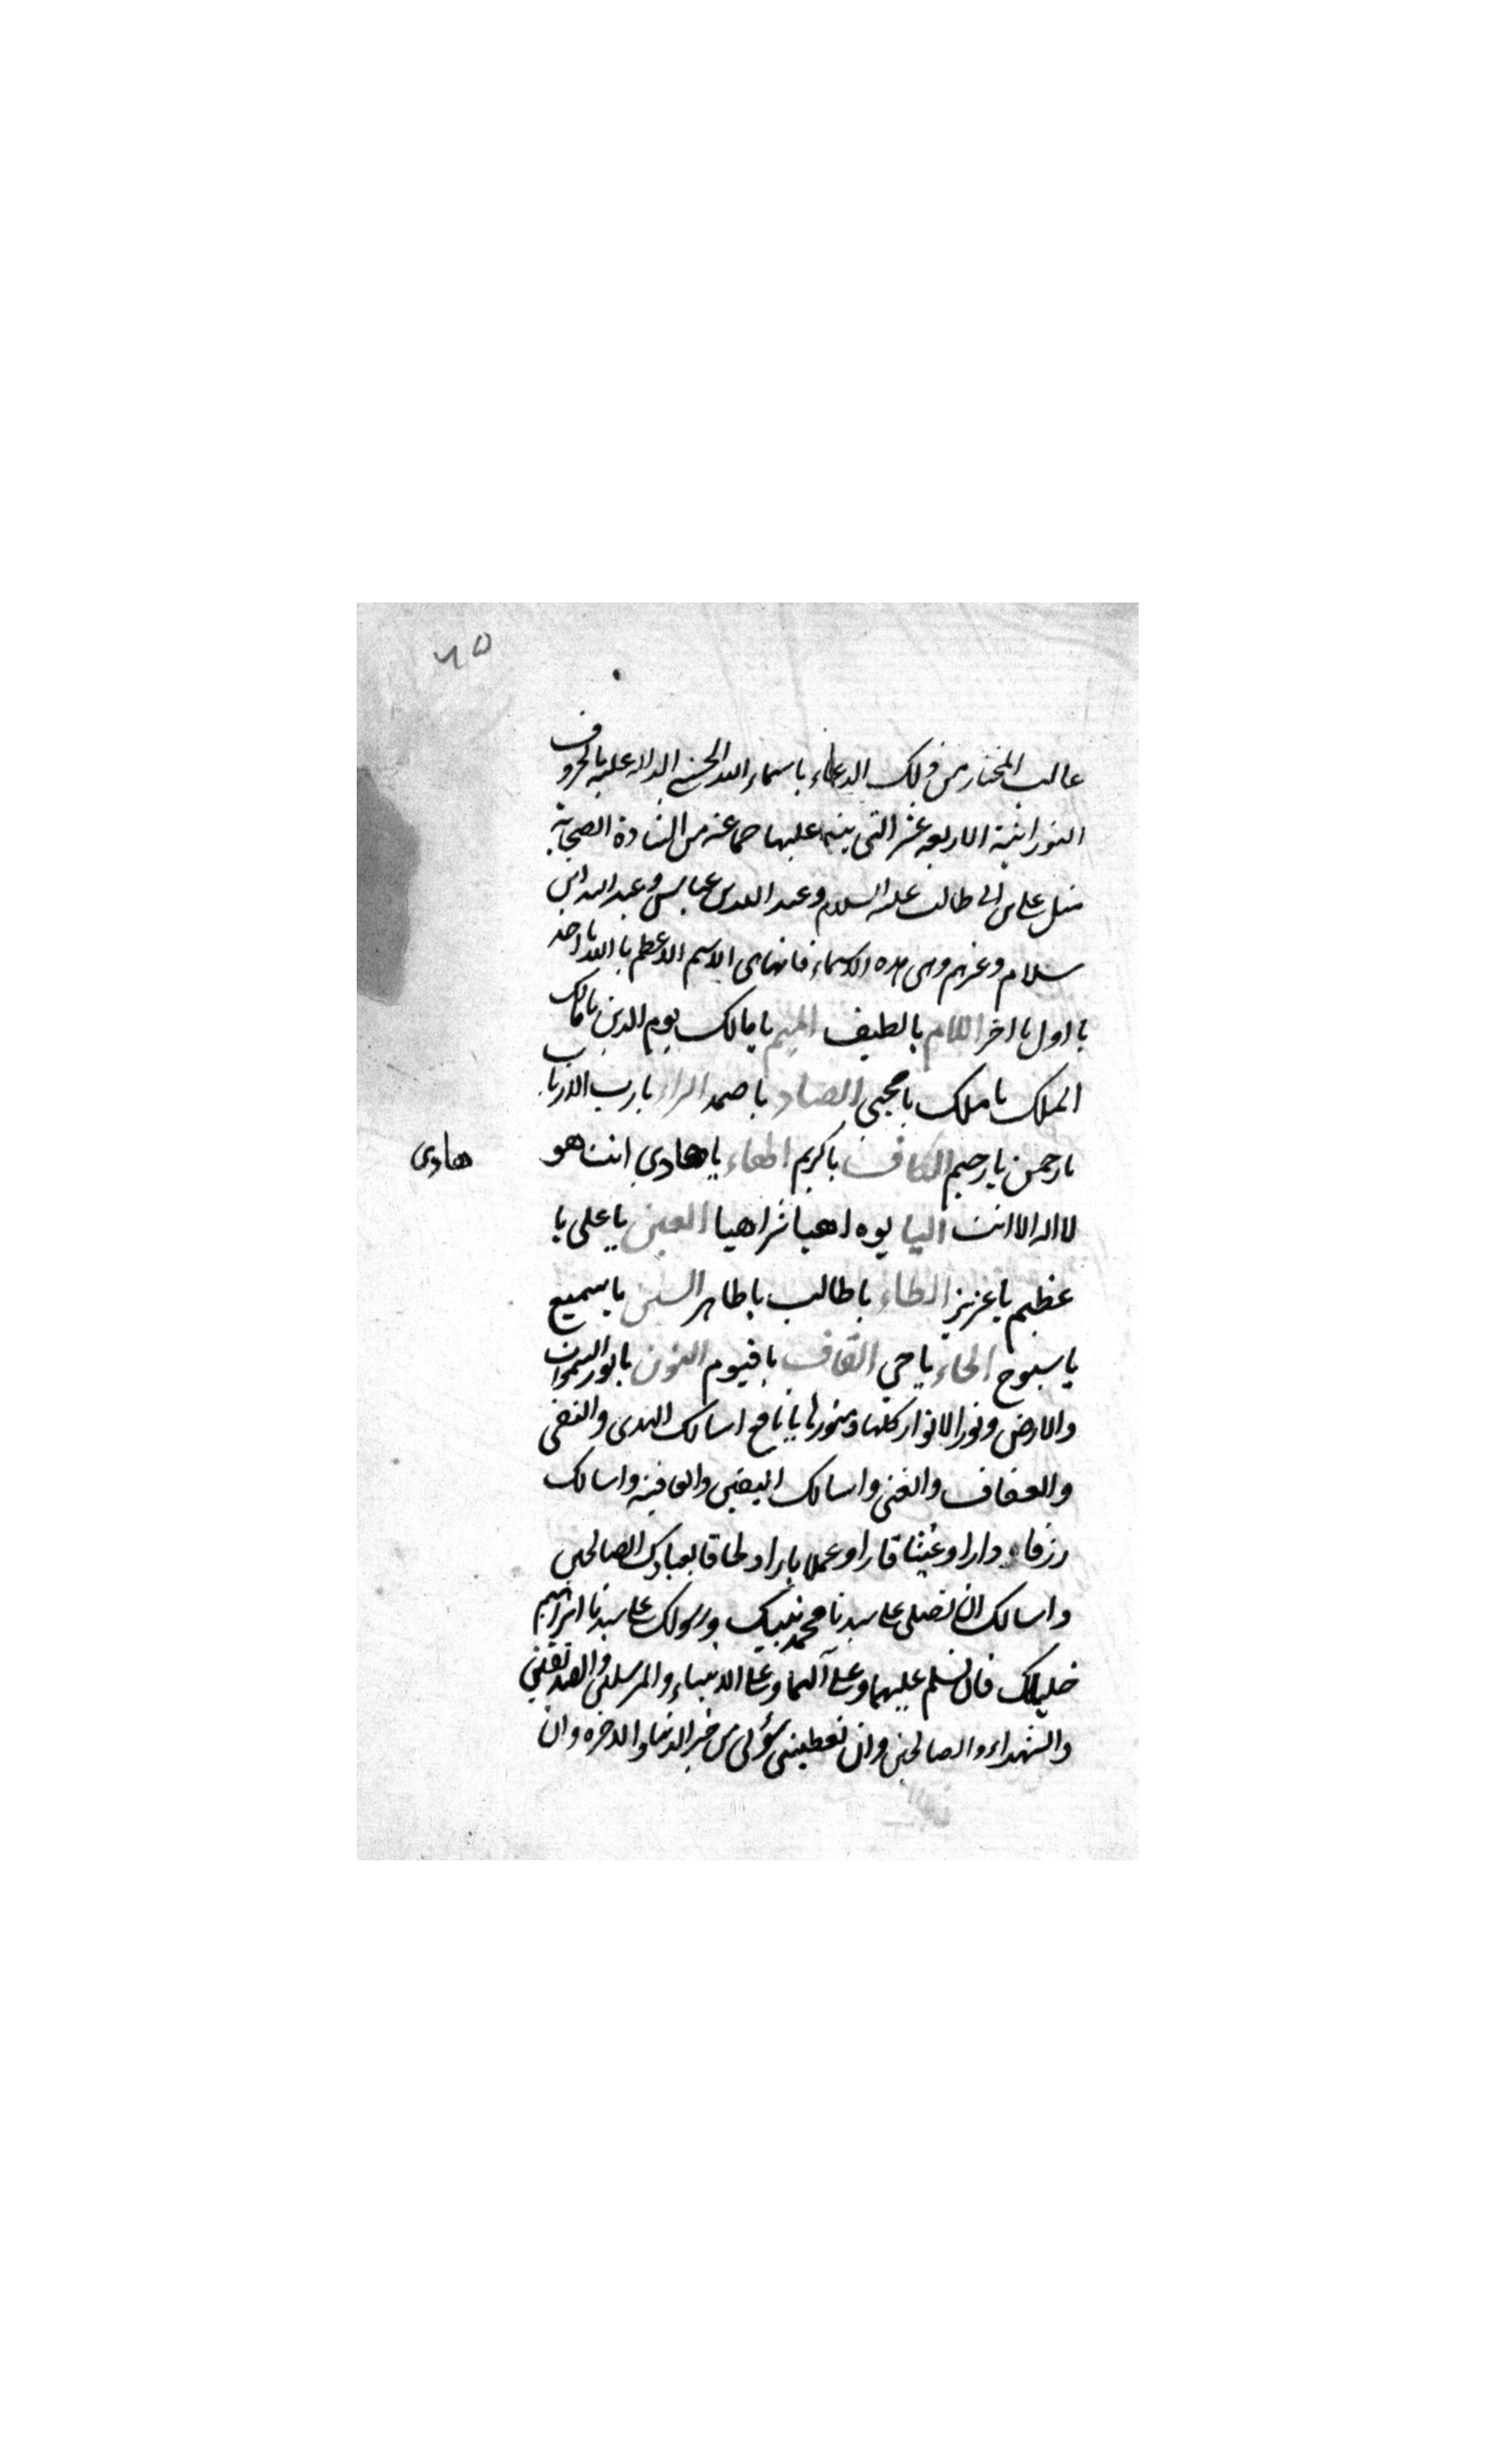 ٦٥
المختار من ذلك الدعاء باسماء الله الحسنى الدالة عليه بالحروف
النورانية الاربعة عشر التى ينبه عليها جماعة من السادة الصحابة
مثل على بن ابى طالب عليه السلام وعبد الله بن عباس وعبد الله ابن
سلام وغيرهم وهى هذه الاسماء فانها هى الاسم الاعظم يا الله يا احد
يا اول يا اخر اللام يا لطيف الميم يا مالك يوم الدين يا مالك
الملك يا ملك يا محيى الصاد يا صمد الراء يا رب الارباب
يا رحمن يا رحيم الكاف يا كريم الهاء يا هادي انت هو
هادى
لا اله الا انت اليا يوه اهيا شراهيا العين يا على يا
عظيم يا عزيز الطاء يا طالب يا طاهر السين يا سميع
يا سبوح الحاء يا حي القاف يا قيوم النون يا نور السموات
والارض ونور الانوار كلها ومنورها يا نافع اسالك الهدى والتقى
والعفاف والغنى واسالك اليقين والعافية واسالك
رزقا دارا وعيشا قارا وعملا بارا ولحاقا بعبادك الصالحين
واسالك ان تصلى على سيدنا محمد نبيك ورسولك وعلى سيدنا ابراهيم
خليلك وان تسلم عليهما وعلى آلهما وعلى الانبياء والمرسلين والصديقين
والشهداء والصالحين وان تعطينى سؤلى من خير الدنيا والاخره وان